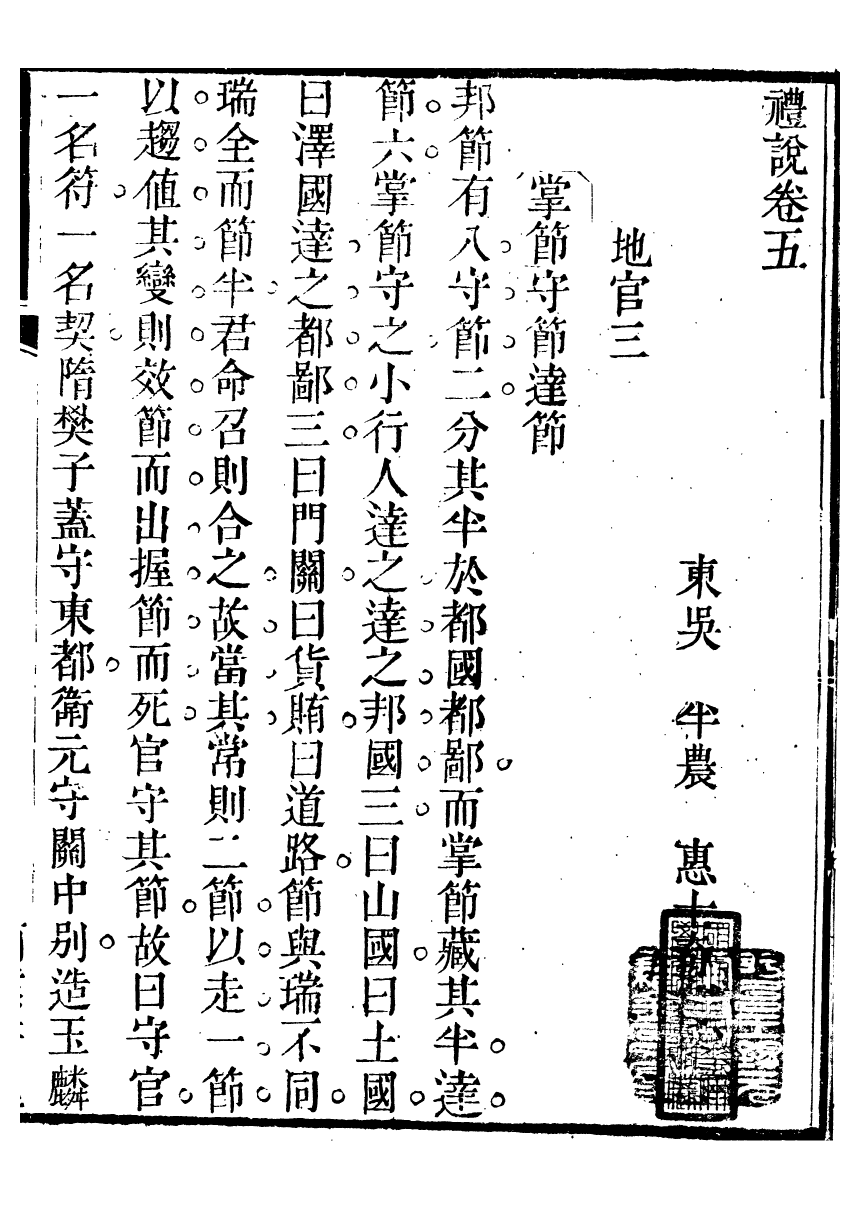 禮說卷五
東吳　半農　惠士
地官三
掌節守節達節
邦節有八守節二分其半於都國都鄙而掌節藏其半達
節六掌節守之小行人達之達之邦國三曰山國曰土國
曰澤國達之都鄙三曰門關曰貨賄曰道路節與瑞不同
瑞全而節半君命召則合之故當其常則二節以走一節
以趨值其變則效節而出握節而死官守其節故曰守官
一名符一名契隋樊子蓋守東都衛元守關中別造玉麟